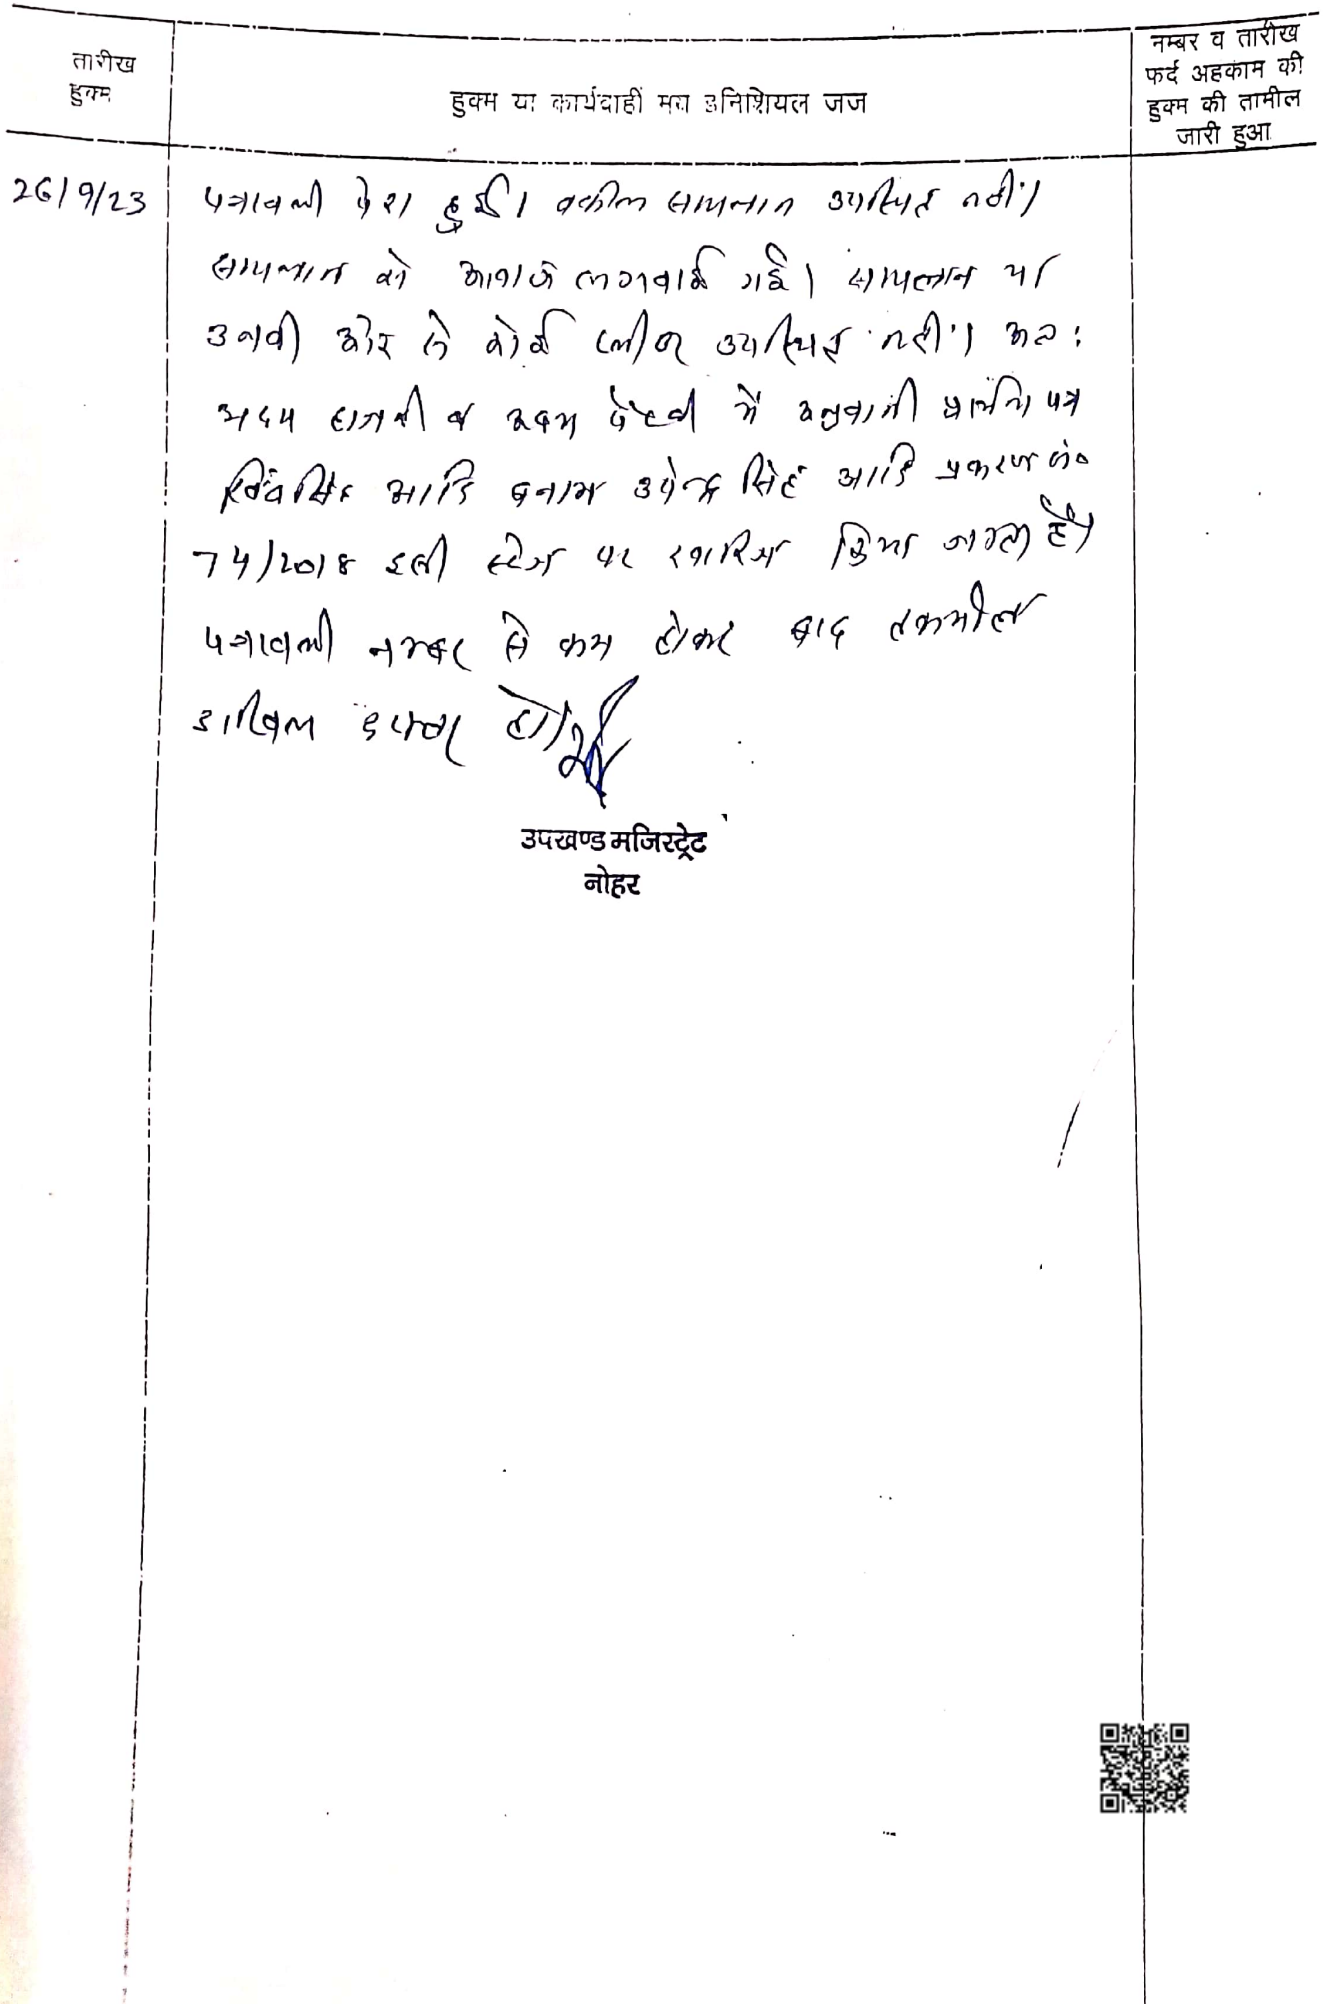 तारीख
हुक्म
हुक्म या कार्यवाहीं मय इनिशियल जज
नम्बर व तारीख
फर्द अहकाम की
हुक्म की तामील
जारी हुआ
26/9/23
पत्रावली पेश हुई। वकील सायलान उपस्थित नहीं।
सायलान को आवाजे लगवाई गई। सायलान या
उनकी ओर से कोई प्लीडर उपस्थित नहीं। अतः
अदम हाजरी व अदम पैरवी में प्रार्थना पत्र
आदि बनाम उपेन्द्र सिंह आदि प्रकरण नं०
74/2018 इसी स्टेज पर खारिज किया जाता है।
पत्रावली नम्बर से कम होकर बाद तकमील
दाखिल दफ्तर हो।
उपखण्ड मजिस्ट्रेट
नोहर